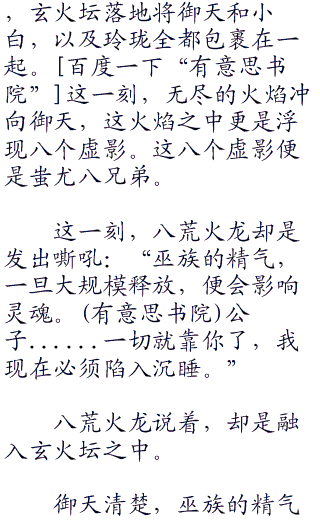 ，玄火坛落地将御天和小
白，以及玲珑全都包裹在一
起。[百度一下“有意思书
院”]这一刻，无尽的火焰冲
向御天，这火焰之中更是浮
现八个虚影。这八个虚影便
是蚩尤八兄弟。
这一刻，八荒火龙却是
发出嘶吼：“巫族的精气，
一旦大规模释放，便会影响
灵魂。(有意思书院)公
子......一切就靠你了，我
现在必须陷入沉睡。”
八荒火龙说着，却是融
入玄火坛之中。
御天清楚，巫族的精气